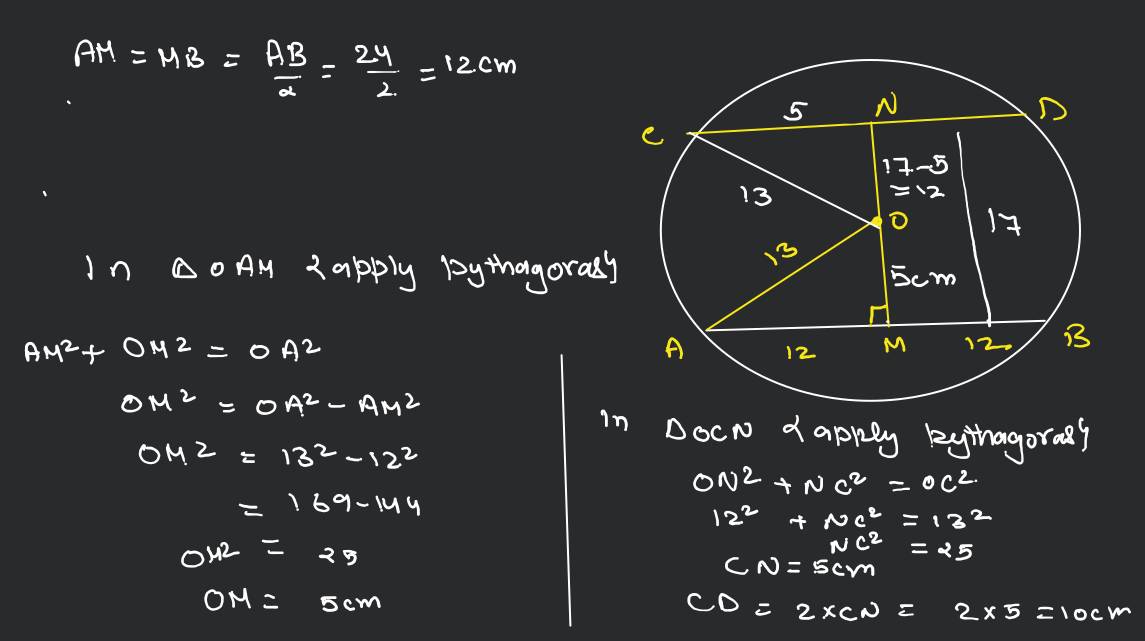 AM = MB = AB/2 = 24/2 = 12cm
In △OAM [apply pythagoras]
AM² + OM² = OA²
OM² = OA² - AM²
OM² = 13² - 12²
= 169 - 144
OM² = 25
OM = 5cm
C 5 N D
17-5
= 12
13
O
17
13
5cm
A 12 M 12 B
In △OCN [apply pythagoras]
ON² + NC² = OC²
12² + NC² = 13²
NC² = 25
CN = 5cm
CD = 2 x CN = 2 x 5 = 10cm